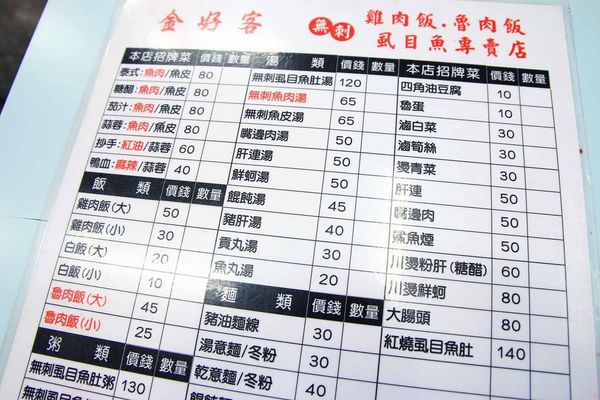 金好客
無刺
雞肉飯.魯肉飯
虱目魚專賣店
本店招牌菜 價錢 數量
泰式:魚肉/魚皮 80
糖醋:魚肉/魚皮 80
茄汁:魚肉/魚皮 80
蒜蓉:魚肉/魚皮 80
抄手:紅油/蒜蓉 60
鴨血:麻辣/蒜蓉 40
飯類 價錢 數量
雞肉飯(大) 50
雞肉飯(小) 30
白飯(大) 20
白飯(小) 10
魯肉飯(大) 45
魯肉飯(小) 25
粥類 價錢 數量
無刺虱目魚肚粥 130
湯類 價錢 數量
無刺虱目魚肚湯 120
無刺魚肉湯 65
無刺魚皮湯 65
嘴邊肉湯 50
肝連湯 50
鮮蚵湯 50
餛飩湯 45
豬肝湯 40
貢丸湯 30
魚丸湯 20
麵類 價錢 數量
豬油麵線 30
湯意麵/冬粉 30
乾意麵/冬粉 40
本店招牌菜 價錢 數量
四角油豆腐 10
魯蛋 10
滷白菜 30
滷筍絲 30
燙青菜 30
肝連 50
嘴邊肉 50
鯊魚煙 50
川燙粉肝(糖醋) 60
川燙鮮蚵 80
大腸頭 80
紅燒虱目魚肚 140